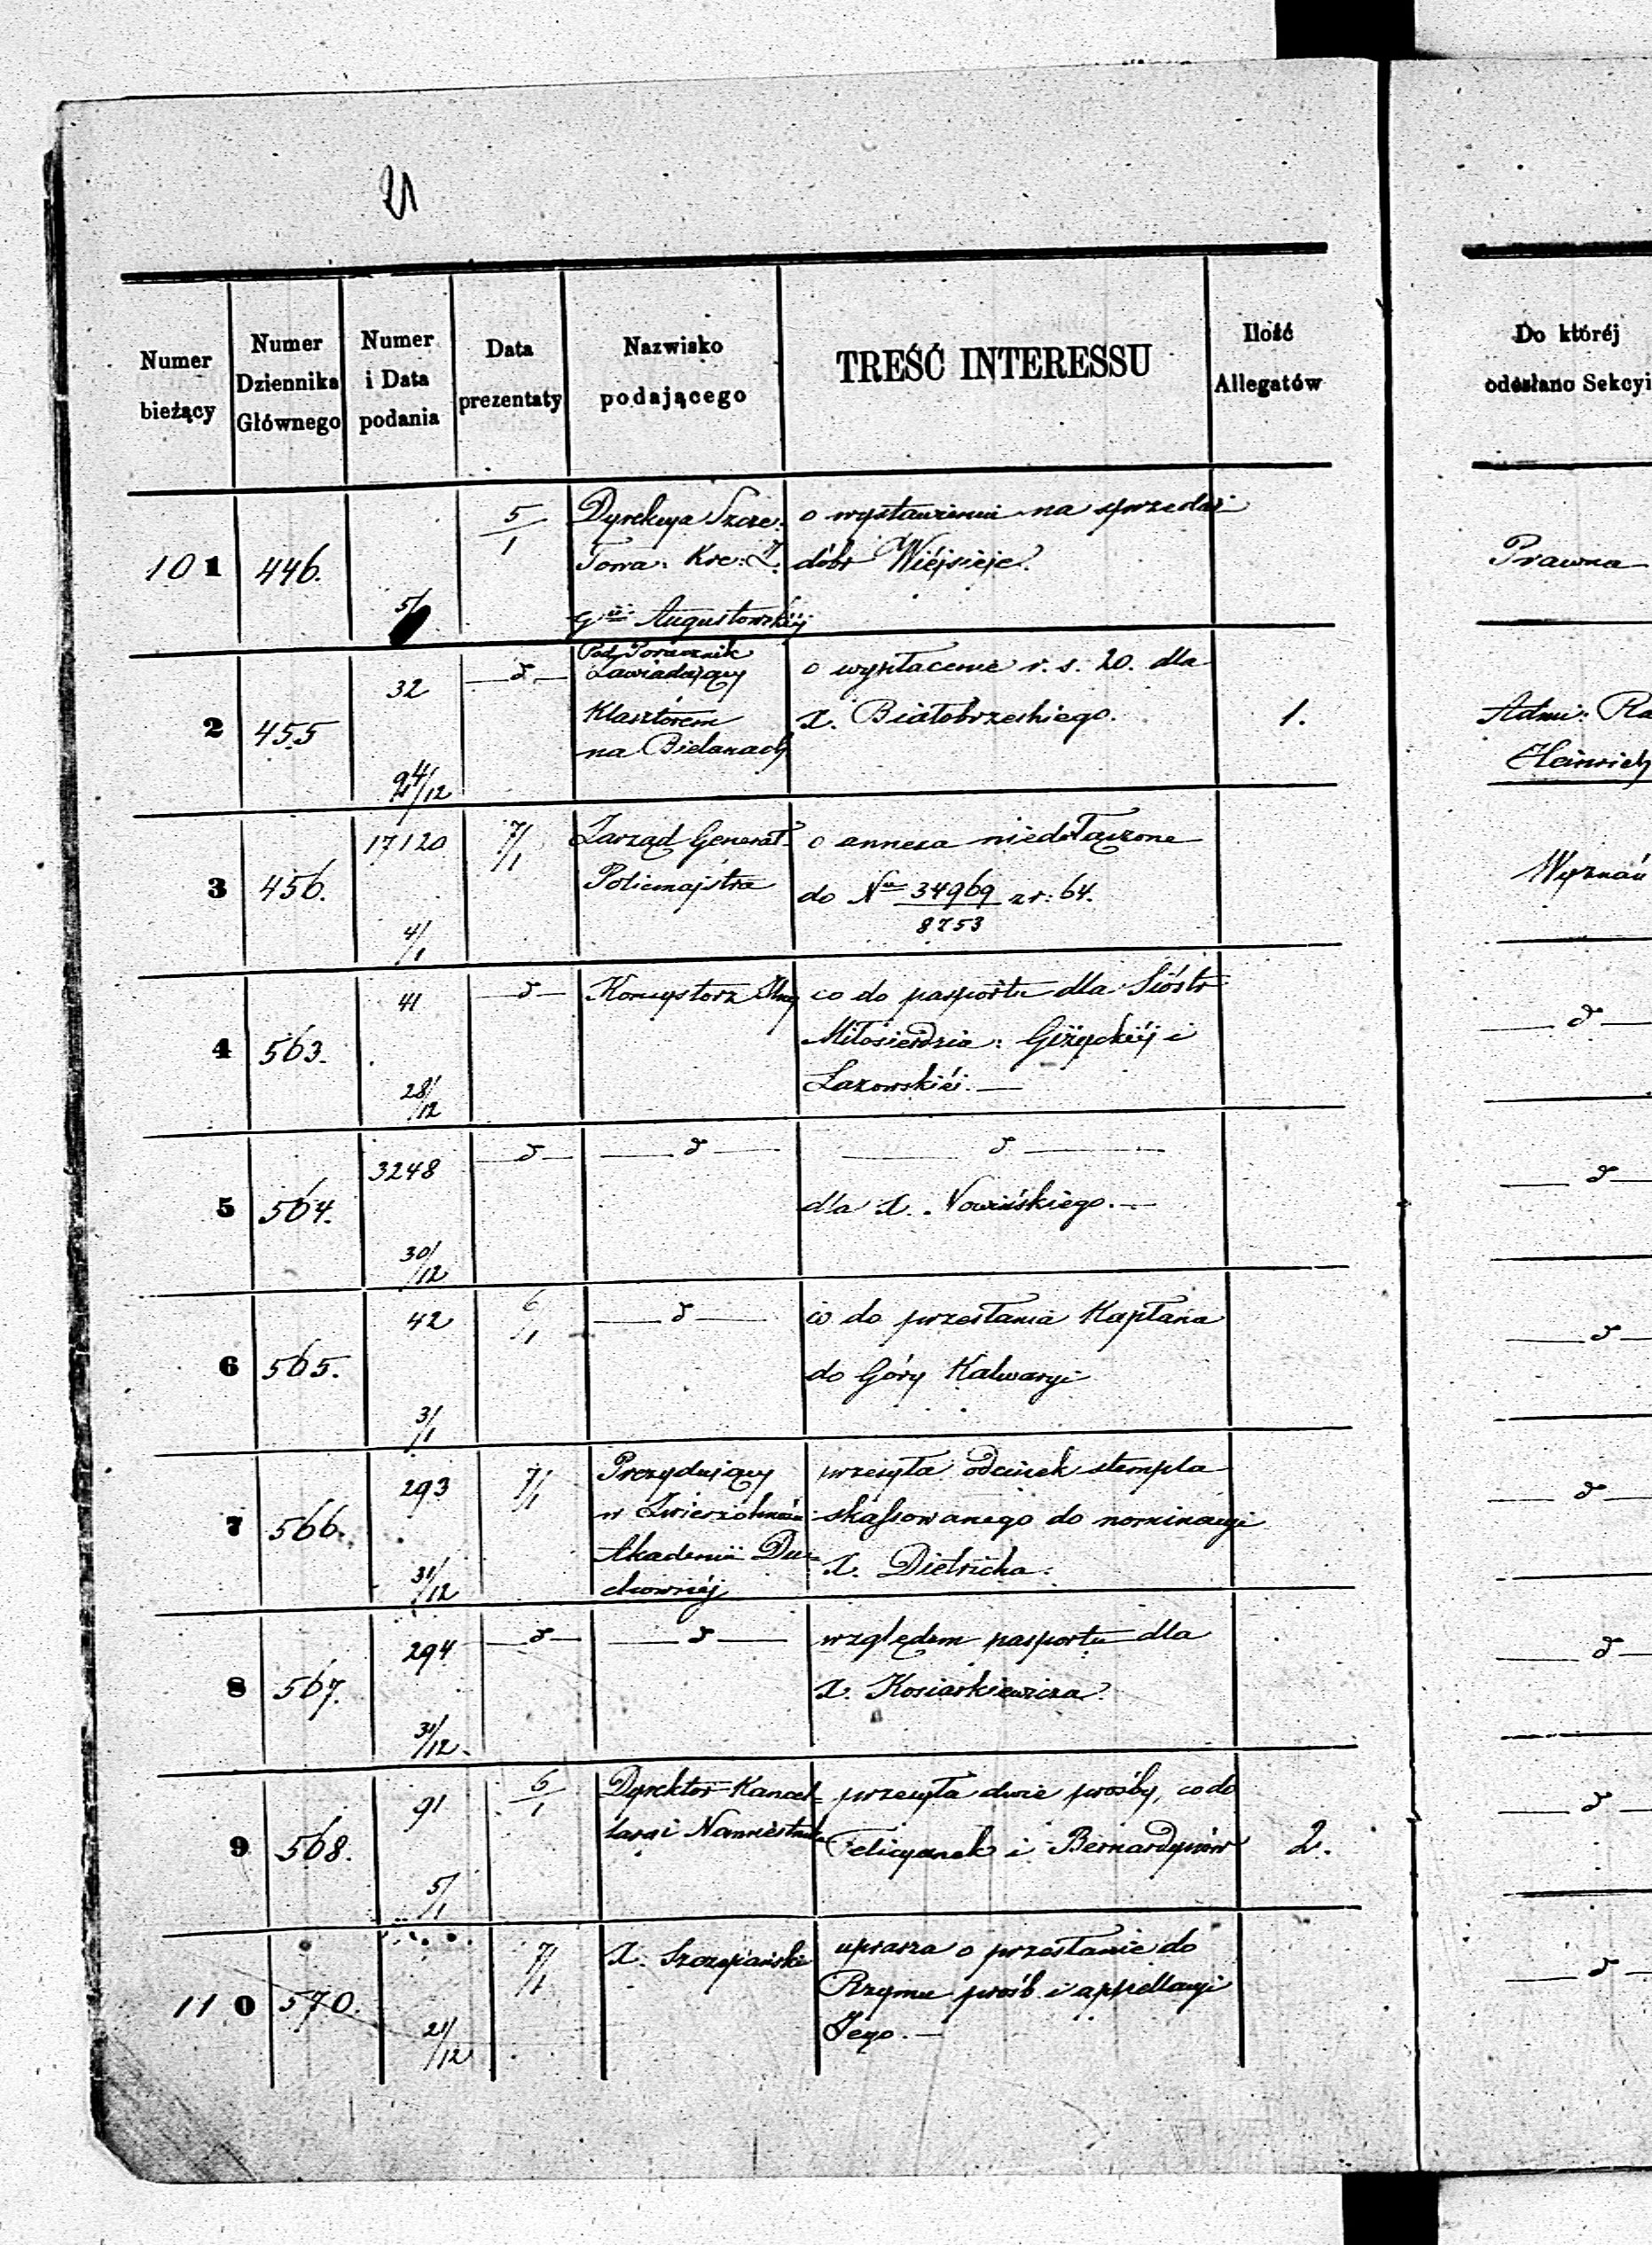 21
Numer bieżący
Numer Dziennika Głównego
Numer i Data podania
Data prezentaty
Nazwisko podającego
TREŚĆ INTERESSU
Ilość Allegatów
Do której odesłano Sekcyi
101 446. 5/ 5/1 Dyrekcya Szcze: o wystawieniu na sprzedaż
Towa: Kre: Z. dóbr Wiejsieje. Prawna
Gii Augustowskiéj
2 455 32 d Pod Porucznik
Zawiadujący o wypłacenie r. s. 20. dla
Klasztorem X. Białobrzeskiego. 1. Admi:
na Bielanach Heinrich
/12
3 456. 17120 7/1 Zarząd Generał o annexa niedołączone
Policmajstra do Nru 34969 z r: 64. Wyznań
4/1 8753
4 563. 41 d Konsystorz co do pasportu dla Sióstr d
Miłosierdzia: Giżyckiéj i
28/12 Lazowskiéj. —
5 564. 3248 d d d d
dla X. Nowińskiego. —
30/12
6 565. 42 6/1 d co do przesłania Kapłana d
do Góry Kalwaryi
3/1
7 566. 293 7/1 Prezydujący przesyła odcinek stempla d
w skassowanego do nominacyi
31/12 Akademii Du= X. Dietricha.
chownéj
8 567. 294 d d względem pasportu dla d
X. Kosiarkiewicza.
31/12.
9 568. 91 6/1 Dyrektor Kancel= przesyła dwie prośby, co do d
laryi Namiestnika Felicyanek i Bernardynów 2.
5/1
110 570. 7/1 X. Szczepański uprasza o przesłanie do d
Rzymu prośb i appellacyi
21/12 Jego. —